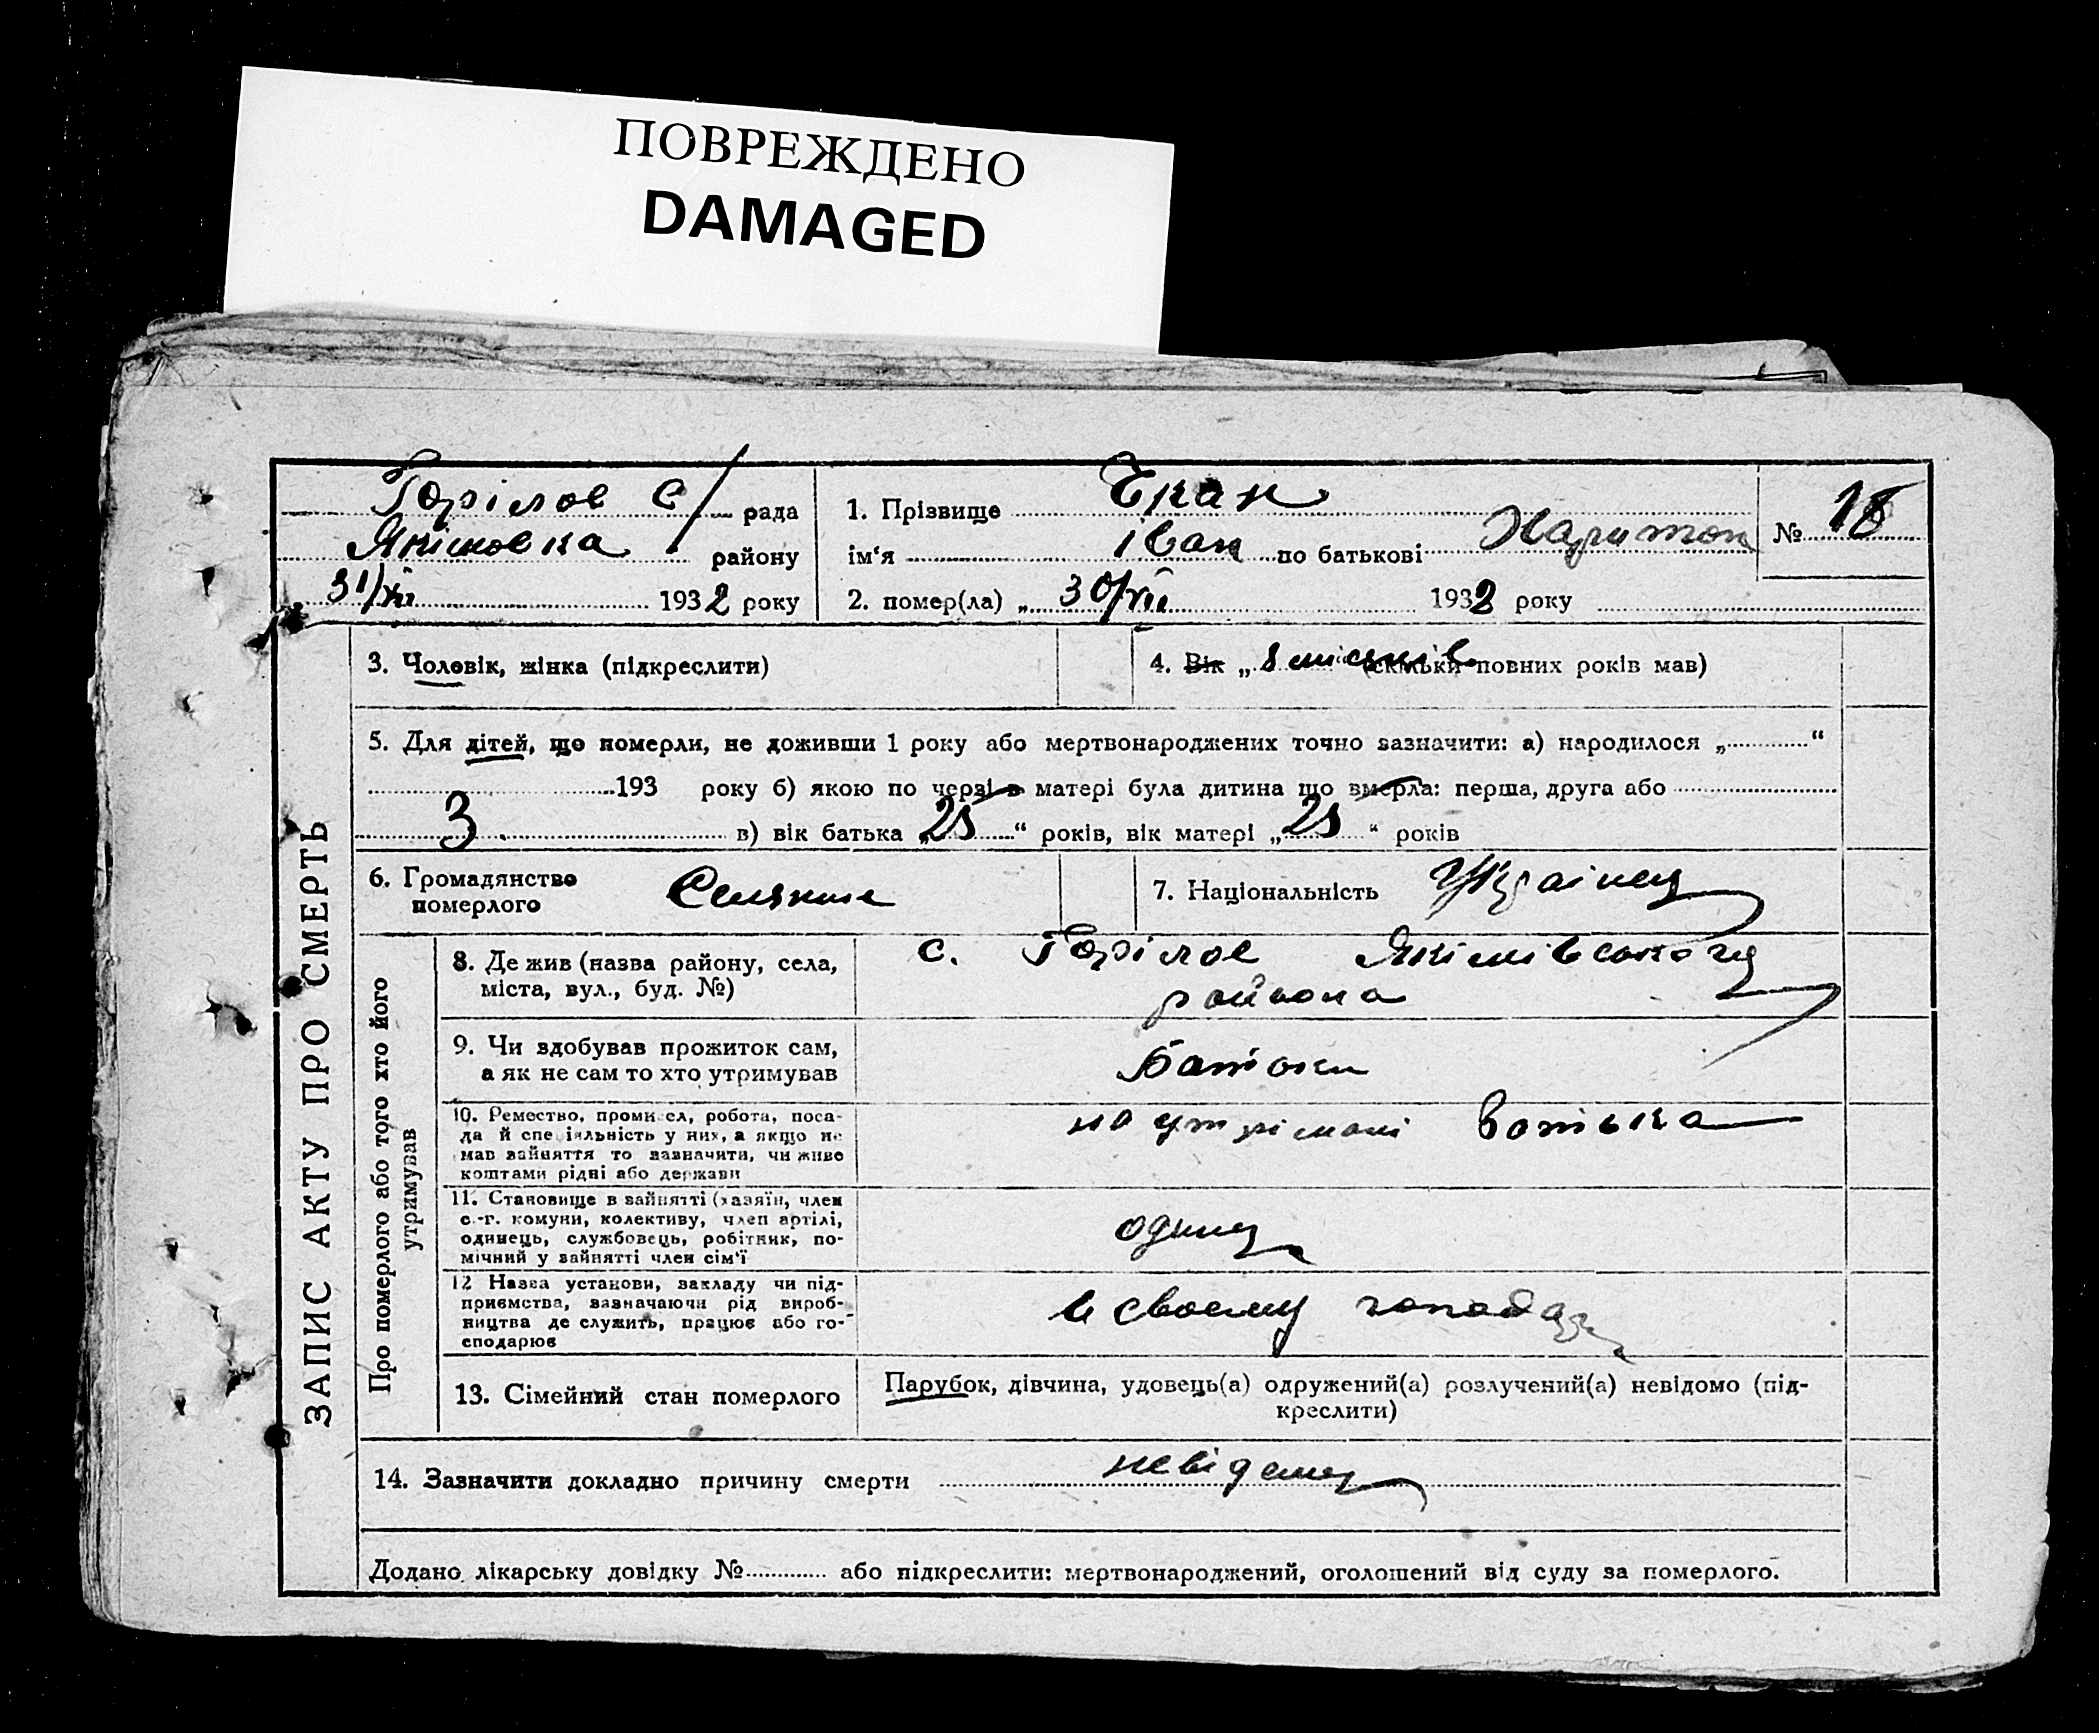 ПОВРЕЖДЕНО
DAMAGED
Горілов с/ рада
Якімовка району
31/XII 1932 року
1. Прізвище Екан
ім‘я іван по батькові Харитон
№ 18
2. помер(ла) „ 30/XII 1932 року
3. Чоловік, жінка (підкреслити)
4. Вік „ 8 місяців (скільки повних років мав)
5. Для дітей, що померли, не доживши 1 року або мертвонароджених точно зазначити: а) народилося „ “
193 року б) якою по черзі в матері була дитина що вмерла: перша, друга або
3 в) вік батька „ 25 “ років, вік матері „ 25 “ років
6. Громадянство
померлого
7. Національність Українец
ЗАПИС АКТУ ПРО СМЕРТЬ
Про померлого або того хто його
утримував
8. Де жив (назва району, села,
міста, вул., буд. №)
с. Горілов Якімівського
района
9. Чи здобував прожиток сам,
а як не сам то хто утримував
Батьки
10. Ремество, промисел, робота, поса-
да й спеціяльність у них, а якщо не
мав зайняття то зазначити, чи живе
коштами рідні або держави
на утрімані батька
11. Становище в зайнятті (хазяїн, член
с.-г. комуни, колективу, член артілі,
одинець, службовець, робітник, по-
мічний у зайнятті член сім‘ї
одинец
12 Назва установи, закладу чи під-
приємства, зазначаючи рід вироб-
ництва де служить, працює або го-
сподарює
в своему
13. Сімейний стан померлого
Парубок, дівчина, удовець(а) одружений(а) розлучений(а) невідомо (під-
креслити)
14. Зазначити докладно причину смерти
Додано лікарську довідку № або підкреслити: мертвонароджений, оголошений від суду за померлого.